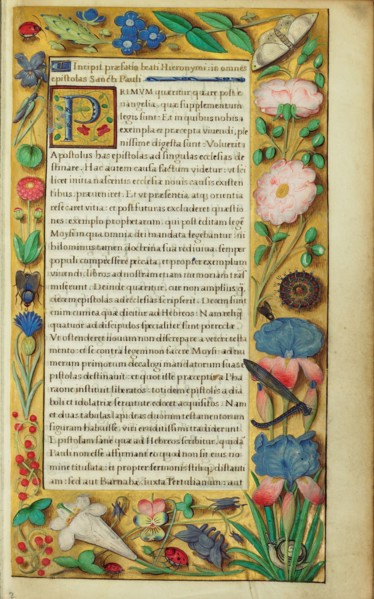 Incipit præfatio beati Hieronymi in omnes
epistolas Sancti Pauli
PRIMUM quæritur, quare post e-
uangelia, quæ supplementum
legis sunt: Et in quibus nobis
exempla et præcepta uiuendi, ple
nissime digesta sunt: Voluerit
Apostolus has epistolas ad singulas ecclesias de-
stinare. Hac autem causa factum uidetur: ut sci
licet initia nascentis ecclesiæ nouis causis existen
tibus præueniret. Et ut præsentia, atque orientia
resecaret uitia: et post futuras excluderet quæstio
nes: exemplo prophetarum: qui post editam legem
Moysi in qua omnia dei mandata legebantur: ni
hilominus tamen doctrina sua rediuiua, semper
populi compressere peccata, et propter exemplum
uiuendi, libros ad nostram etiam memoriam trās
miserunt. Deinde quæritur, cur non amplius, q̄
decem epistolas ad ecclesias scripserit. Decem sunt
enim cum ea quæ dicitur ad Hebreos: Nam reliquæ
quatuor ad discipulos specialiter sunt porrectæ.
Ut ostenderet nouum non discrepare a ueteri testa
mento: et se contra legem non facere Moysi: ad nu
merum primorum decalogi mandatorum suas e-
pistolas destinauit: et quot ille præceptis a Pha
raone instituit liberatos: totidem epistolis a dia
boli et idolatriæ seruitute edocet acquisitos. Nam
et duas tabulas lapideas duorum testamentorum
figuram habuisse, uiri eruditissimi tradiderunt.
Epistolam sane quæ ad Hebreos scribitur, quidā
Pauli non esse affirmant eo quod non sit eius no-
mine titulata: et propter sermonis stilique distanti
am: sed aut Barnabæ iuxta Tertulianum: aut